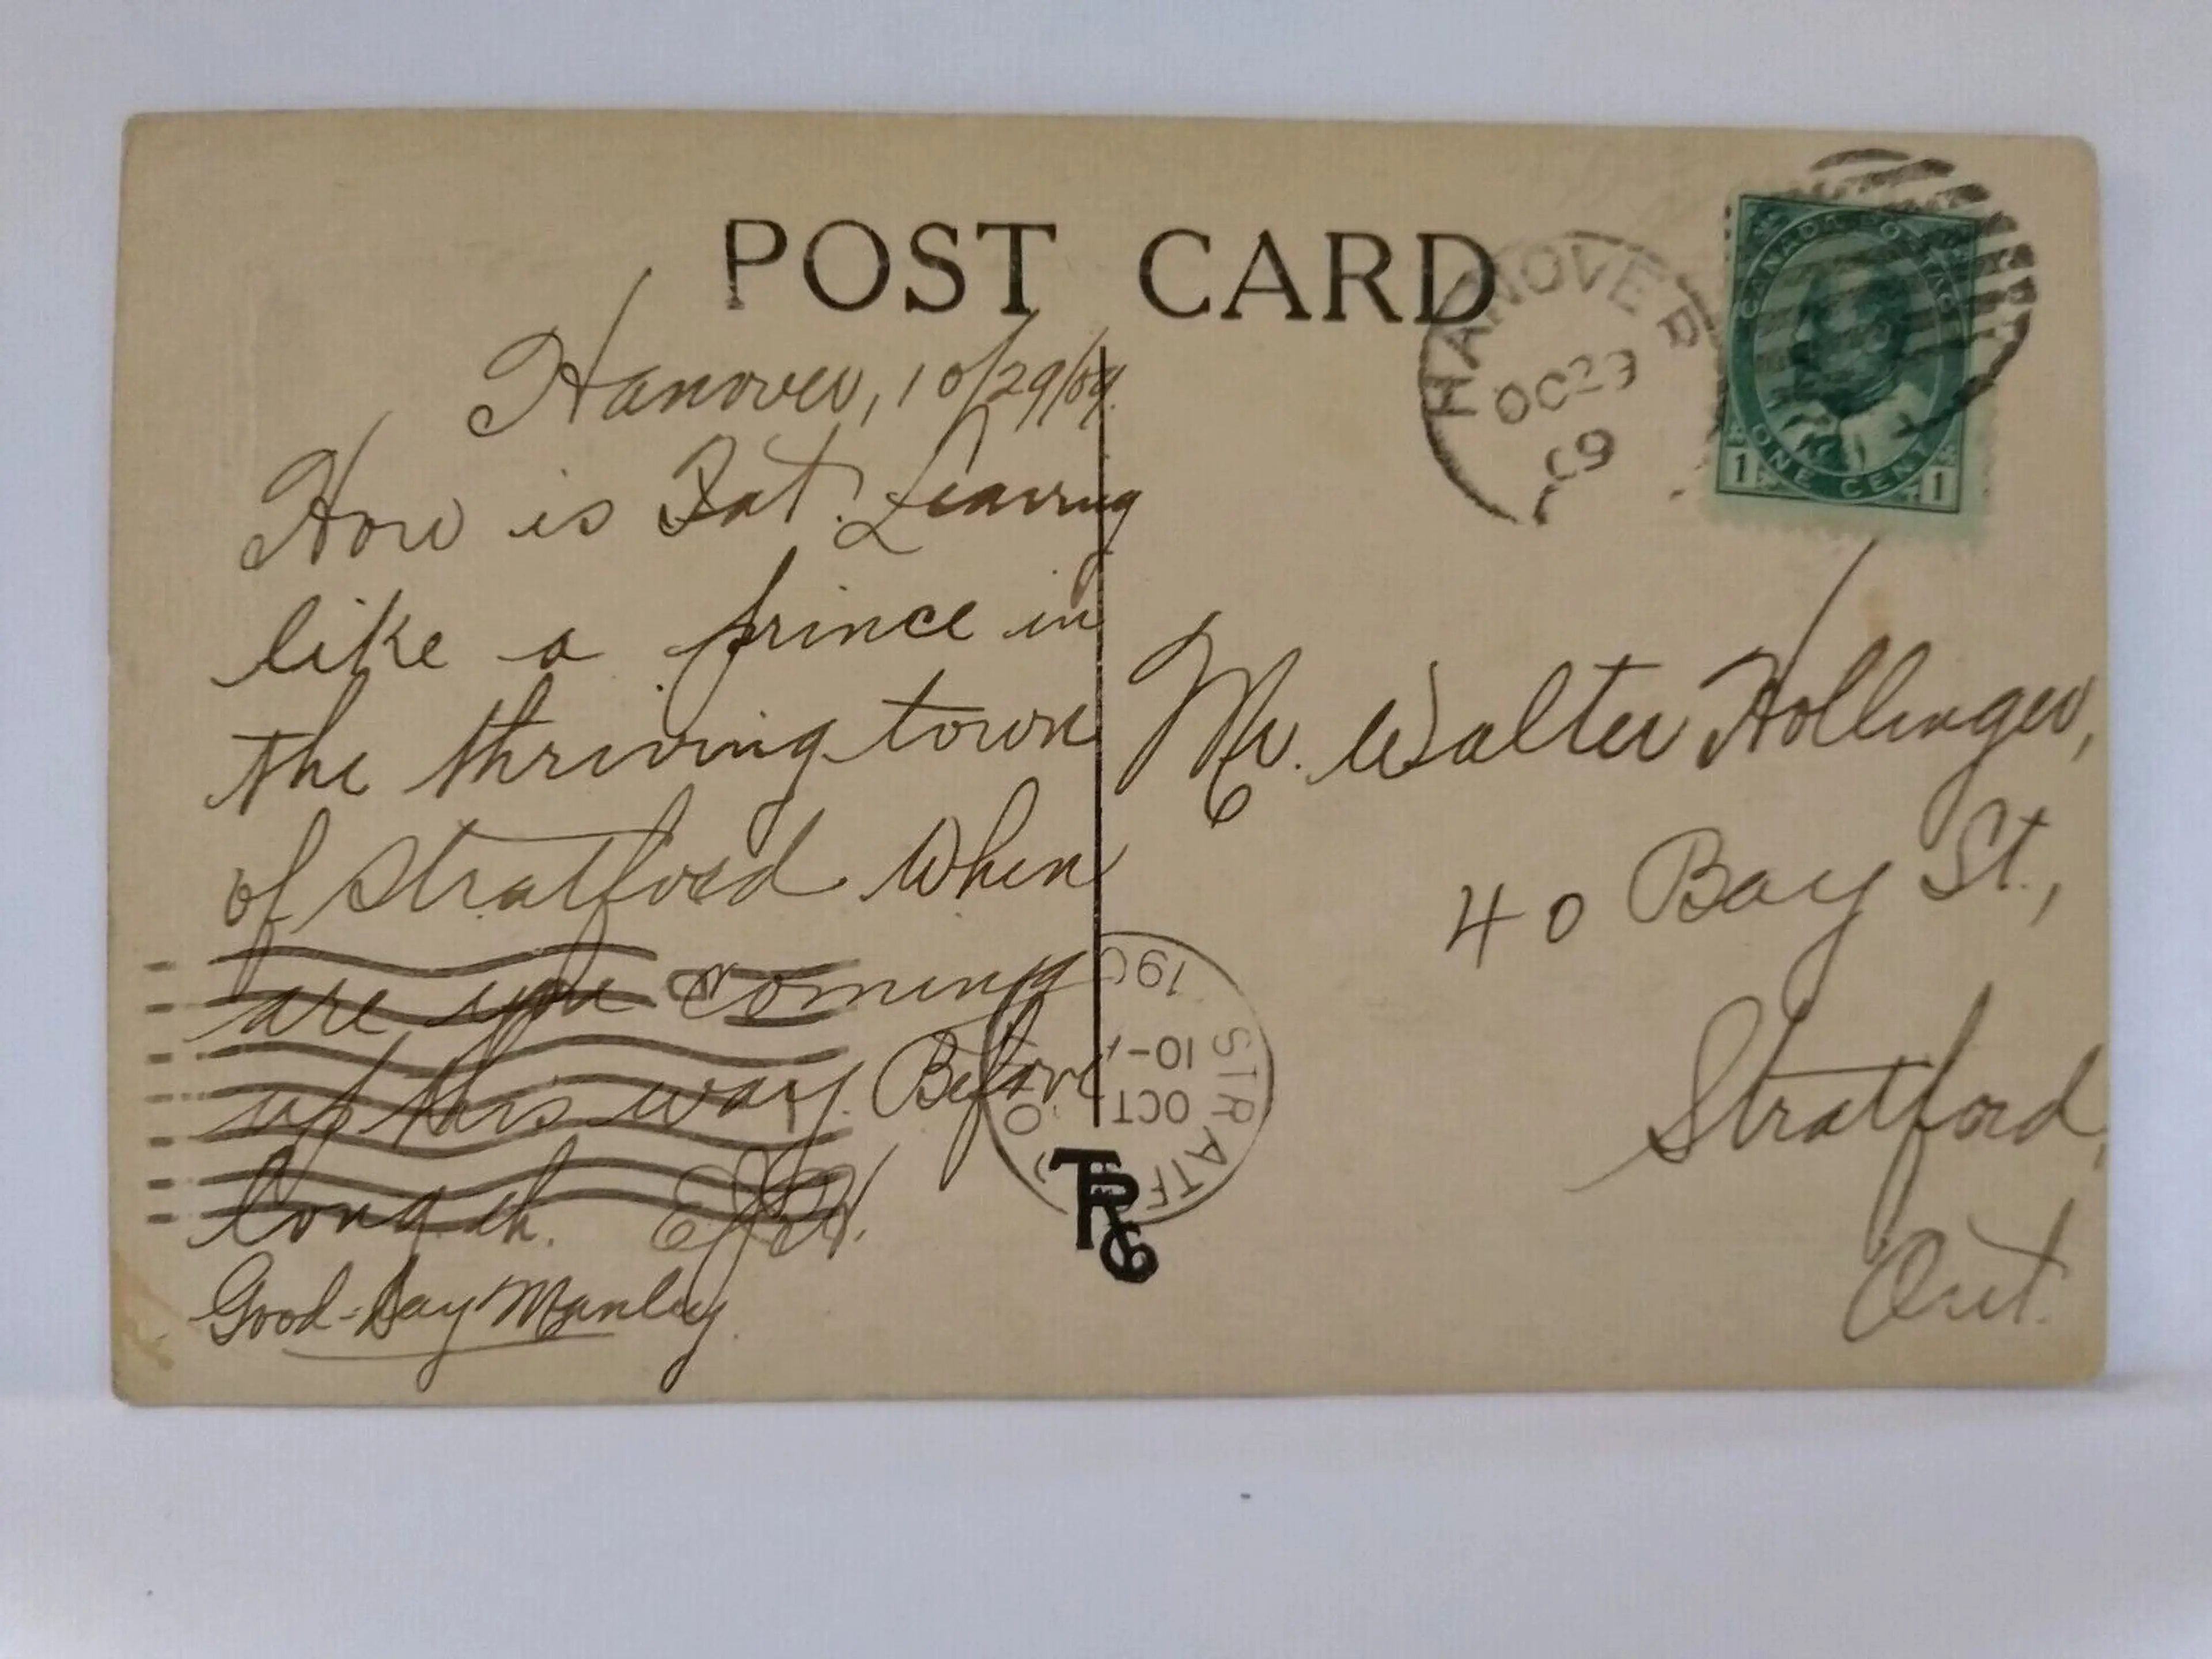 POST CARD
HANOVER
OC 29
09
CANADA POSTAGE
ONE CENT
1 1
Hanover, 10/29/09.
How is Fat. Leaving
like a prince in
the thriving town
of Stratford When
are you coming
up this way. Before
long eh.
Good-Day Manley.
Mr. Walter Hollinger,
40 Bay St.,
Stratford,
Ont.
STRATF
OCT
10-
190
TRG